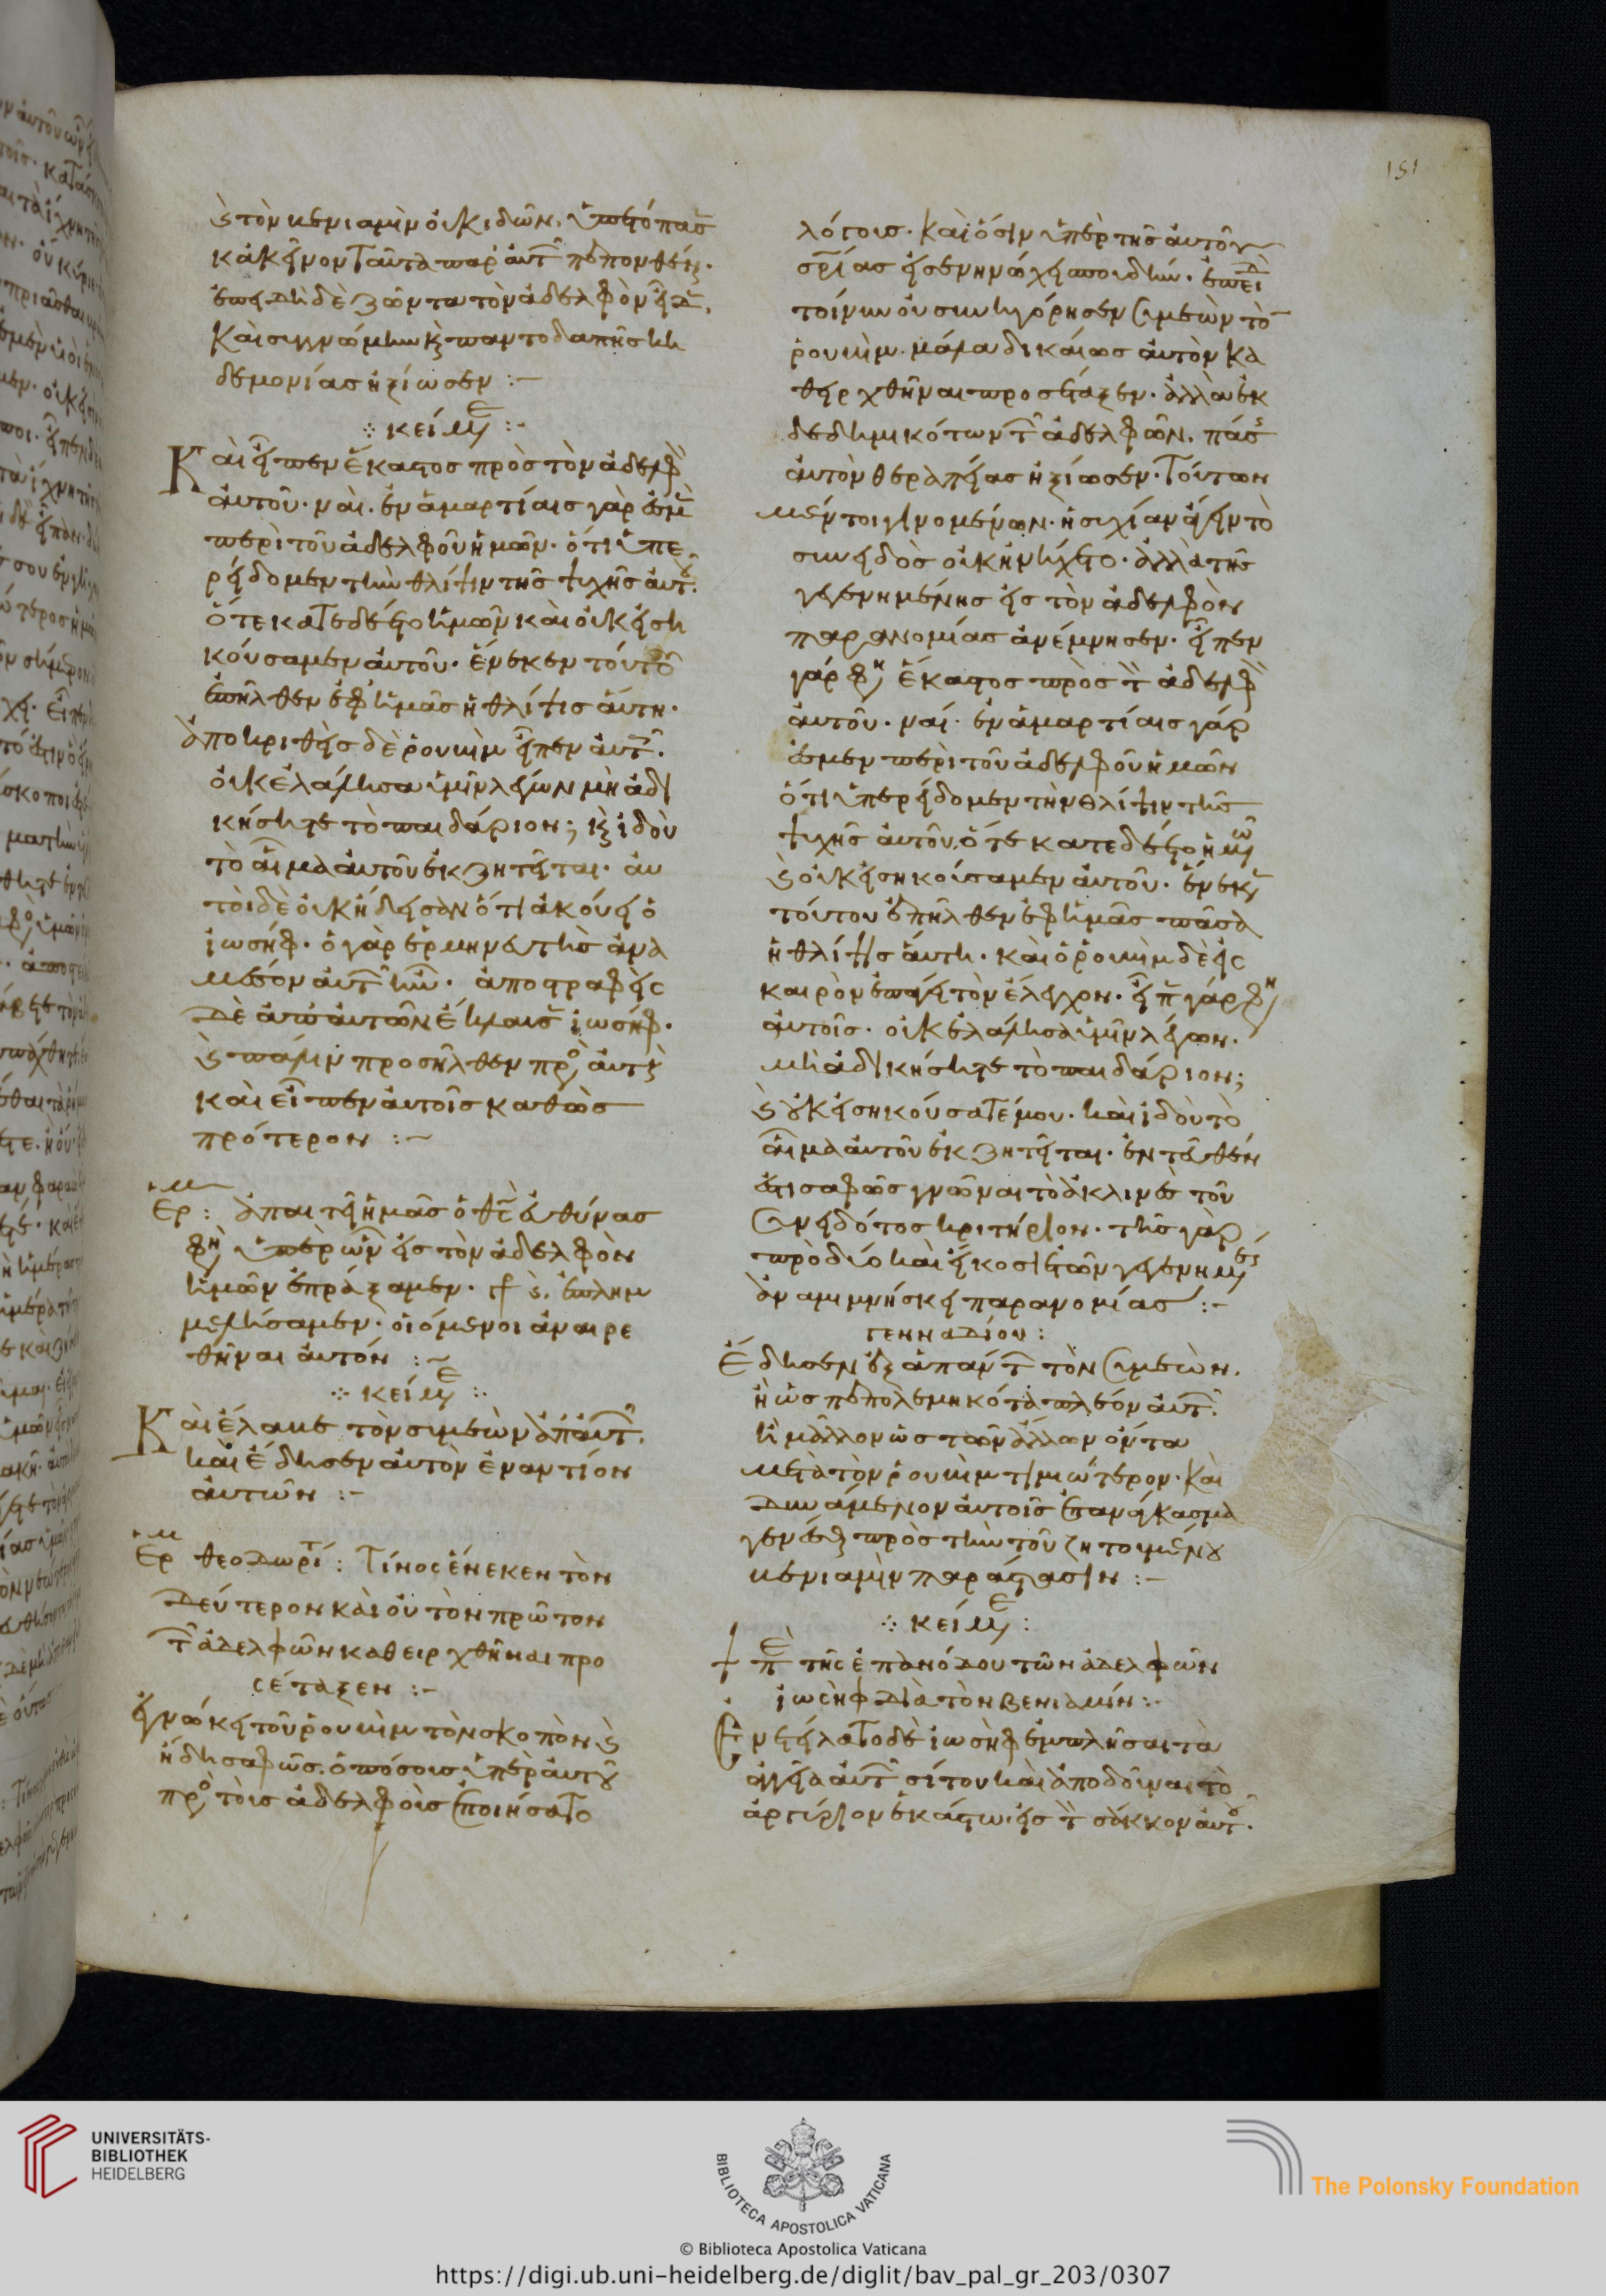 151
ϗ τὸν βενιαμὶν οὐκ ἰδών. ὑπετόπασ
κἀκεῖνον ταῦτα παρ αὐτ πεπονθέναι.
ἐπειδὴ δὲ ζῶντα τὸν ἀδελφὸν εἶδ.
καὶ συγγνώμην ϗ παντοδαπῆς κη
δεμονίας ἠξίωσεν :-
κείμε :-
Καὶ εἶπεν ἕκαστος πρὸς τὸν ἀδελφ
αὐτοῦ. ναί. ἐν ἁμαρτίαις γὰρ ἐσμ
περὶ τοῦ ἀδελφοῦ ἡμῶν. ὅτι ὑπε
ρείδομεν τὴν θλίψιν τῆς ψυχῆς αὐτ.
ὅτε κατεδέετο ἡμῶν καὶ οὐκ εἰση
κούσαμεν αὐτοῦ. ἕνεκεν τούτου
ἐπῆλθεν ἐφ ἡμᾶς ἡ θλίψις αὕτη.
ἀποκριθεὶς δὲ ρουβὶμ εἶπεν αὐτ.
οὐκ ἐλάλησα ὑμῖν λέγων μὴ ἀδι
κήσητε τὸ παιδάριον; ϗ ἰδοὺ
τὸ αἷμα αὐτοῦ ἐκζητεῖται. αὐ
τοὶ δὲ οὐκ ᾔδεισαν ὅτι ἀκούει ὁ
ἰωσήφ. ὁ γὰρ ἑρμηνευτὴς ἀνα
μέσον αὐτ ἦν. ἀποστραφεὶς
δὲ ἀπ αὐτῶν ἔκλαυσ ἰωσήφ.
ϗ πάλιν προσῆλθεν πρὸ αὐτ
καὶ εἶπεν αὐτοῖς καθὼς
πρότερον :-
ερμ : ἀπαιτεῖ ἡμᾶς ὁ θς εὐθύνας
φη ὑπὲρ ὧν εἰς τὸν ἀδελφὸν
ἡμῶν ἐπράξαμεν. ϗ ἐπλημ
μελήσαμεν. οἰόμενοι ἀναιρε
θῆναι αὐτόν :-
κείμε :.
Καὶ ἔλαβε τὸν συμεὼν ἀπ αὐτ.
καὶ ἔδησεν αὐτὸν ἐναντίον
αὐτῶν :-
ερμ θεοδωρτί : Τίνος ἕνεκεν τὸν
δεύτερον καὶ οὐ τὸν πρῶτον
τ ἀδελφῶν καθειρχθῆναι προ
σέταξεν :-
ἐγνώκει τοῦ ρουβὶμ τὸν σκοπὸν ϗ
ᾔδη σαφῶς. ὁπόσους ὑπὲρ αὐτοῦ
πρὸ τοὺς ἀδελφοὺς ἐποιήσατο
λόγους. καὶ ὅσην ὑπὲρ τῆς αὐτοῦ
σρίας εἰσενηνόχει σπουδήν. ἐπειδ
τοίνυν οὐ συνηγόρησεν συμεὼν τῶ
ρουβίμ. μάλα δικαίως αὐτὸν κα
θειρχθῆναι προσέταξεν. ἀλλὰ ἐκ
δεδημηκότων τ ἀδελφῶν. πάσ
αὐτὸν θεραπείας ἠξίωσεν. τούτων
μέντοι γινομένων. ἡσυχίαν ἄγειν τὸ
συνειδὸς οὐκ ἠνείχετο. ἀλλὰ τῆς
γεγενημένης εἰς τὸν ἀδελφὸν
παρανομίας ἀνέμνησεν. εἶπεν
γάρ φη ἕκαστος πρὸς τ ἀδελφ
αὐτοῦ. ναί. ἐν ἁμαρτίαις γάρ
ἐσμεν περὶ τοῦ ἀδελφοῦ ἡμῶν
ὅτι ὑπερείδομεν τὴν θλίψιν τῆς
ψυχῆς αὐτοῦ. ὅτε κατεδέετο ἡμῶ
ϗ οὐκ εἰσηκούσαμεν αὐτοῦ. ἕνεκ
τούτου ἐπῆλθεν ἐφ ἡμᾶς πᾶσα
ἡ θλίψις αὕτη. καὶ ὁ ρουβὶμ δὲ εἰς
καιρὸν ἐπάγει τὸν ἔλεγχον. εἶπ γάρ φη
αὐτοῖς. οὐκ ἐλάλησα ὑμῖν λέγων.
μὴ ἀδικήσητε τὸ παιδάριον;
ϗ οὐκ εἰσηκούσατέ μου. καὶ ἰδοὺ τὸ
αἷμα αὐτοῦ ἐκζητεῖται. ἐντεῦθεν
ἔστι σαφῶς γνῶναι τὸ ἀκλινὲς τοῦ
συνειδότος κριτήριον. τῆς γὰρ
πρὸ δύο καὶ εἴκοσι ἐτῶν γεγενημένης
ἀναμιμνήσκει παρανομίας :-
γενναδίου :
Ἔδησεν ἐξ ἁπάντ τὸν συμεὼν.
ἢ ὡς πεπολεμηκότα πλέον αὐτ.
ἢ μᾶλλον ὡς τῶν ἄλλων ὄντα
μετὰ τὸν ρουβὶμ τιμιώτερον. καὶ
δυνάμενον αὐτοῖς ἐπανάγκασμα
γενέσθαι πρὸς τὴν τοῦ ζητουμένου
βενιαμὶν παράστασιν :-
κείμε :
ἐπ τῆς ἐπανόδου τῶν ἀδελφῶν
ἰωσὴφ διὰ τὸν βενιαμίν :-
Ἐνετείλατο δὲ ἰωσὴφ ἐμπλῆσαι τὰ
ἀγγεῖα αὐτ σίτου καὶ ἀποδοῦναι τὸ
ἀργύριον ἑκάστω εἰς τ σάκκον αὐτ.
UNIVERSITÄTS-
BIBLIOTHEK
HEIDELBERG
BIBLIOTECA APOSTOLICA VATICANA
The Polonsky Foundation
© Biblioteca Apostolica Vaticana
https://digi.ub.uni-heidelberg.de/diglit/bav_pal_gr_203/0307